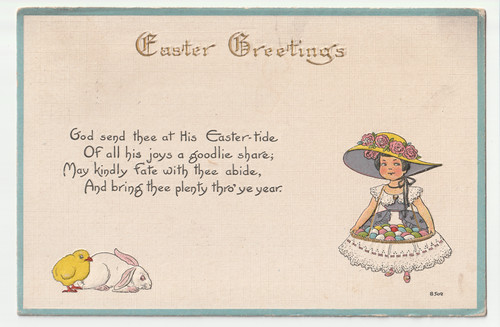 Easter Greetings
God send thee at His Easter-tide
Of all his joys a goodlie share;
May kindly fate with thee abide,
And bring thee plenty thro' ye year.